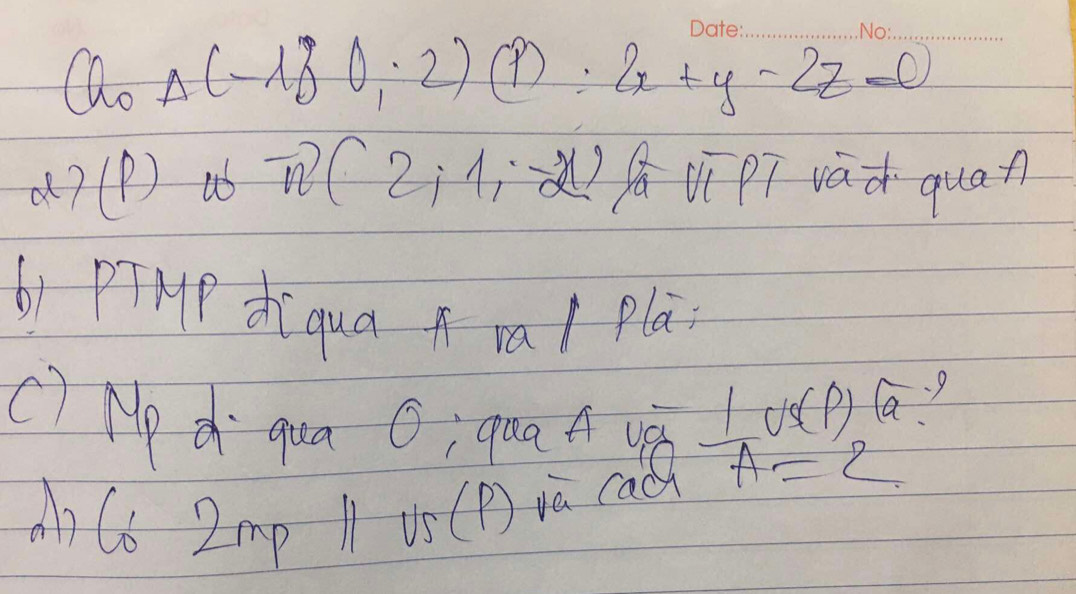 Date:..................No:..................
Cho A(-1; 0; 2) (P): 2x + y - 2z = 0
a) (P) có n(2; 1; -2) là VTPT và đi qua A
b) PTMP đi qua A và // P là:
c) Mp đi qua O; qua A và ⊥ vs (P) là?
d) Có 2mp // vs (P) và cách A = 2.